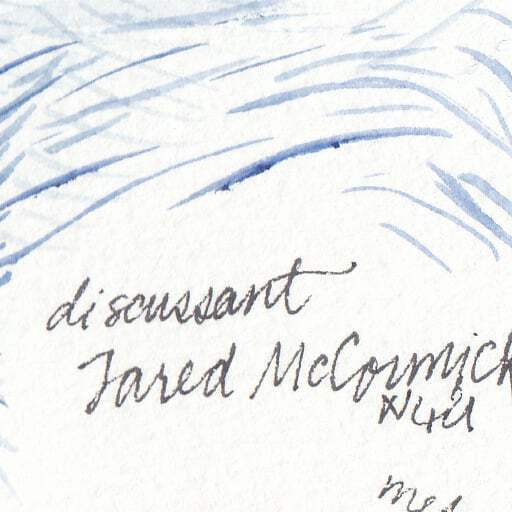 discussant
Jared McCormick